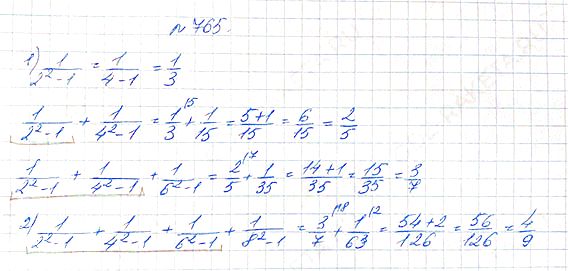 №765.
1) 1/(2²-1) = 1/(4-1) = 1/3
1/(2²-1) + 1/(4²-1) = 1/3 + 1/15 = (5+1)/15 = 6/15 = 2/5
1/(2²-1) + 1/(4²-1) + 1/(6²-1) = 2/5 + 1/35 = (14+1)/35 = 15/35 = 3/7
2) 1/(2²-1) + 1/(4²-1) + 1/(6²-1) + 1/(8²-1) = 3/7 + 1/63 = (54+2)/126 = 56/126 = 4/9